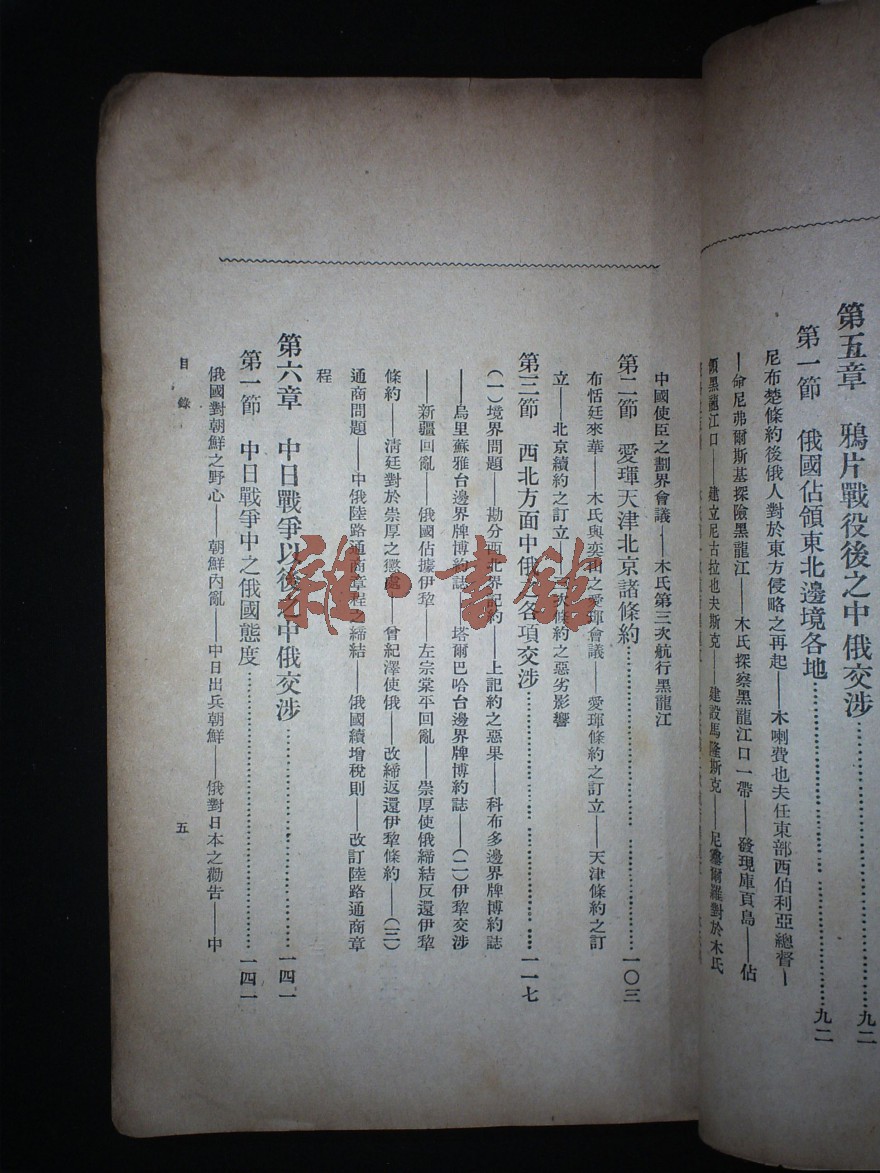 第五章 鴉片戰役後之中俄交涉……九二
第一節 俄國佔領東北邊境各地……九二
尼布楚條約後俄人對於東方侵略之再起——木喇費也夫任東部西伯利亞總督—
—命尼弗爾斯基探險黑龍江——木氏探察黑龍江口一帶——發現庫頁島——佔
領黑龍江口——建立尼古拉也夫斯克——建設馬隆斯克——尼塞爾羅對於木氏
中國使臣之劃界會議——木氏第三次航行黑龍江
第二節 愛琿天津北京諸條約……一〇三
布恬廷來華——木氏與奕山之愛琿會議——愛琿條約之訂立——天津條約之訂
立——北京續約之訂立——次條約之惡劣影響
第三節 西北方面中俄各項交涉……一一七
(一)境界問題——勘分西北界記約——上記約之惡果——科布多邊界牌博約誌
——烏里蘇雅台邊界牌博約誌——塔爾巴哈台邊界牌博約誌——(二)伊犂交涉
——新疆回亂——俄國佔據伊犂——左宗棠平回亂——崇厚使俄締結反還伊犂
條約——清廷對於崇厚之懲處——曾紀澤使俄——改締返還伊犂條約——(三)
通商問題——中俄陸路通商章程之締結——俄國續增稅則——改訂陸路通商章
程
第六章 中日戰爭以後之中俄交涉……一四一
第一節 中日戰爭中之俄國態度……一四一
俄國對朝鮮之野心——朝鮮內亂——中日出兵朝鮮——俄對日本之勸告——中
目錄 五
雜·書館